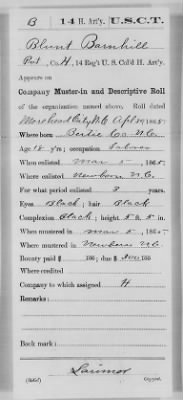 B | 14 H. Art'y. | U.S.C.T.
Blunt Barnhill
Pvt, Co. H, 14 Reg't U. S. Col'd H. Art'y.
Appears on
Company Muster-in and Descriptive Roll
of the organization named above. Roll dated
Morehead City N.C. Apl 1865.
Where born Bertie Co. N.C.
Age 18 y'rs; occupation
When enlisted Mar 5, 1865.
Where enlisted Newbern N.C.
For what period enlisted 3 years.
Eyes Black; hair Black
Complexion Black; height 5 ft. 5 in.
When mustered in Mar 5, 1865
Where mustered in Newbern N.C.
Bounty paid $ 100; due $ 100
Where credited
Company to which assigned H
Remarks:
Book mark:
Larimer
(340d) Copyist.